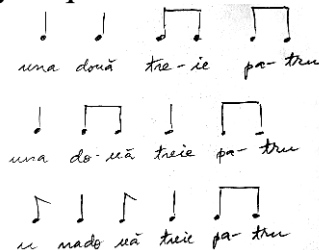 una două tre-ie pa-tru
una do-uă treie pa-tru
u nado uă treie pa-tru